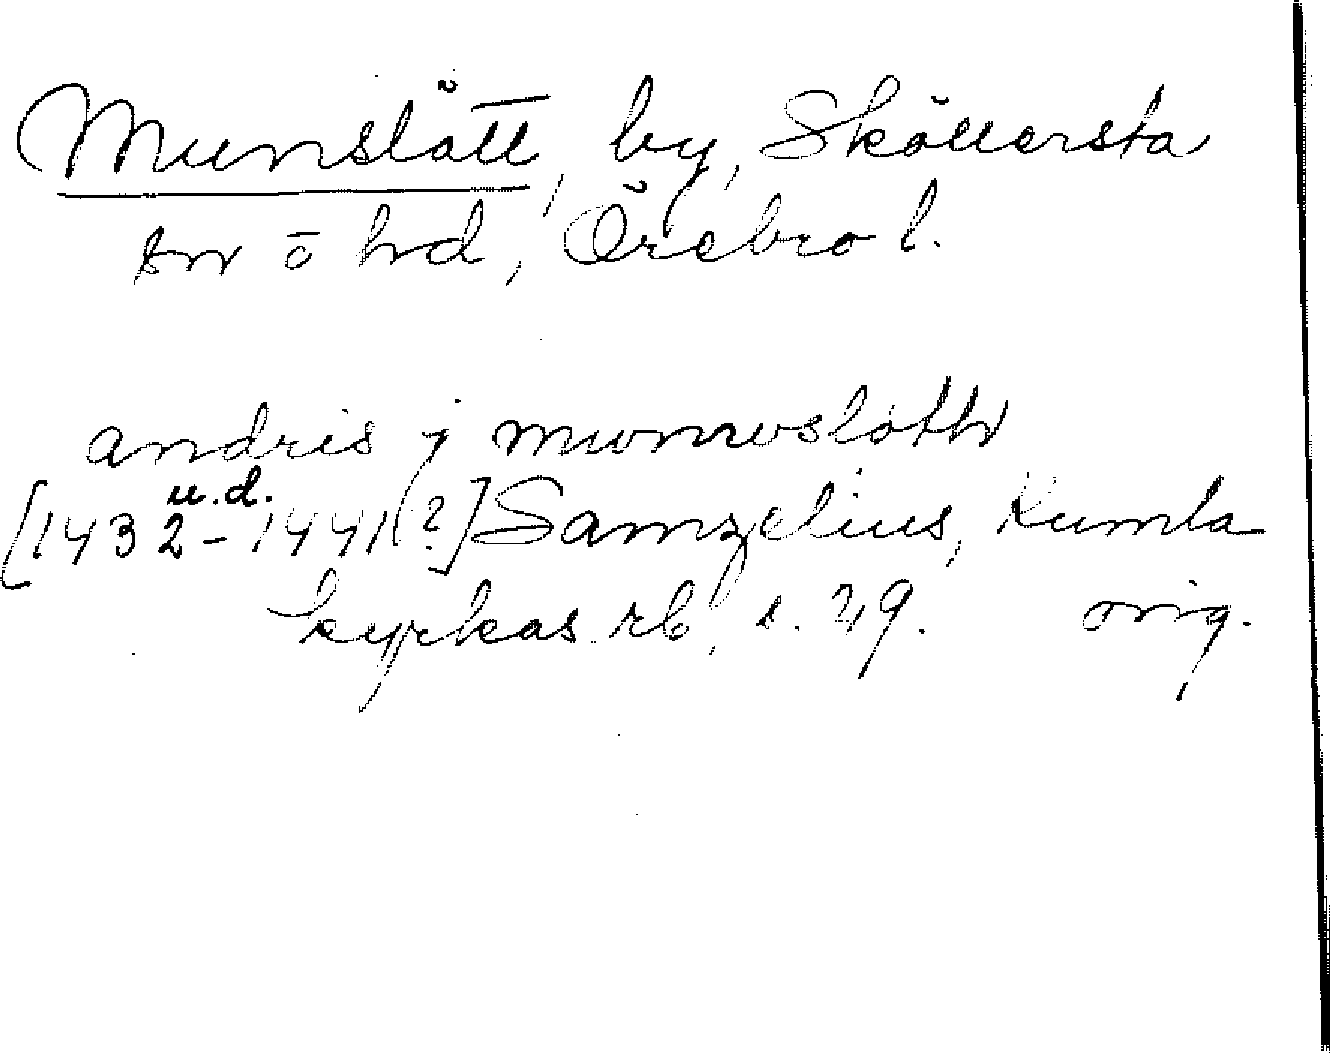 Munslätt, by, Sköllersta
sn o hd, Örebro l.
andris j mwnwslötth
u.d.
[1432-1441(?] Samzelius, Kumla
kyrkas rb, s. 39. orig.